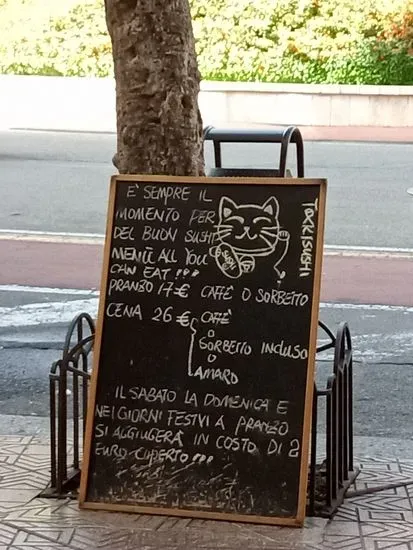 È SEMPRE IL
MOMENTO PER
DEL BUON SUSHI
MENÙ ALL YOU
CAN EAT!!!
SUSHI
TOAKISUSHI
PRANZO 17€ CAFFÈ O SORBETTO
CENA 26€ CAFFÈ
O
SORBETTO INCLUSO
O
AMARO
IL SABATO LA DOMENICA E
NEI GIORNI FESTVI A PRANZO
SI AGGIUGERÀ IN COSTO DI 2
EURO CUPERTO!!!